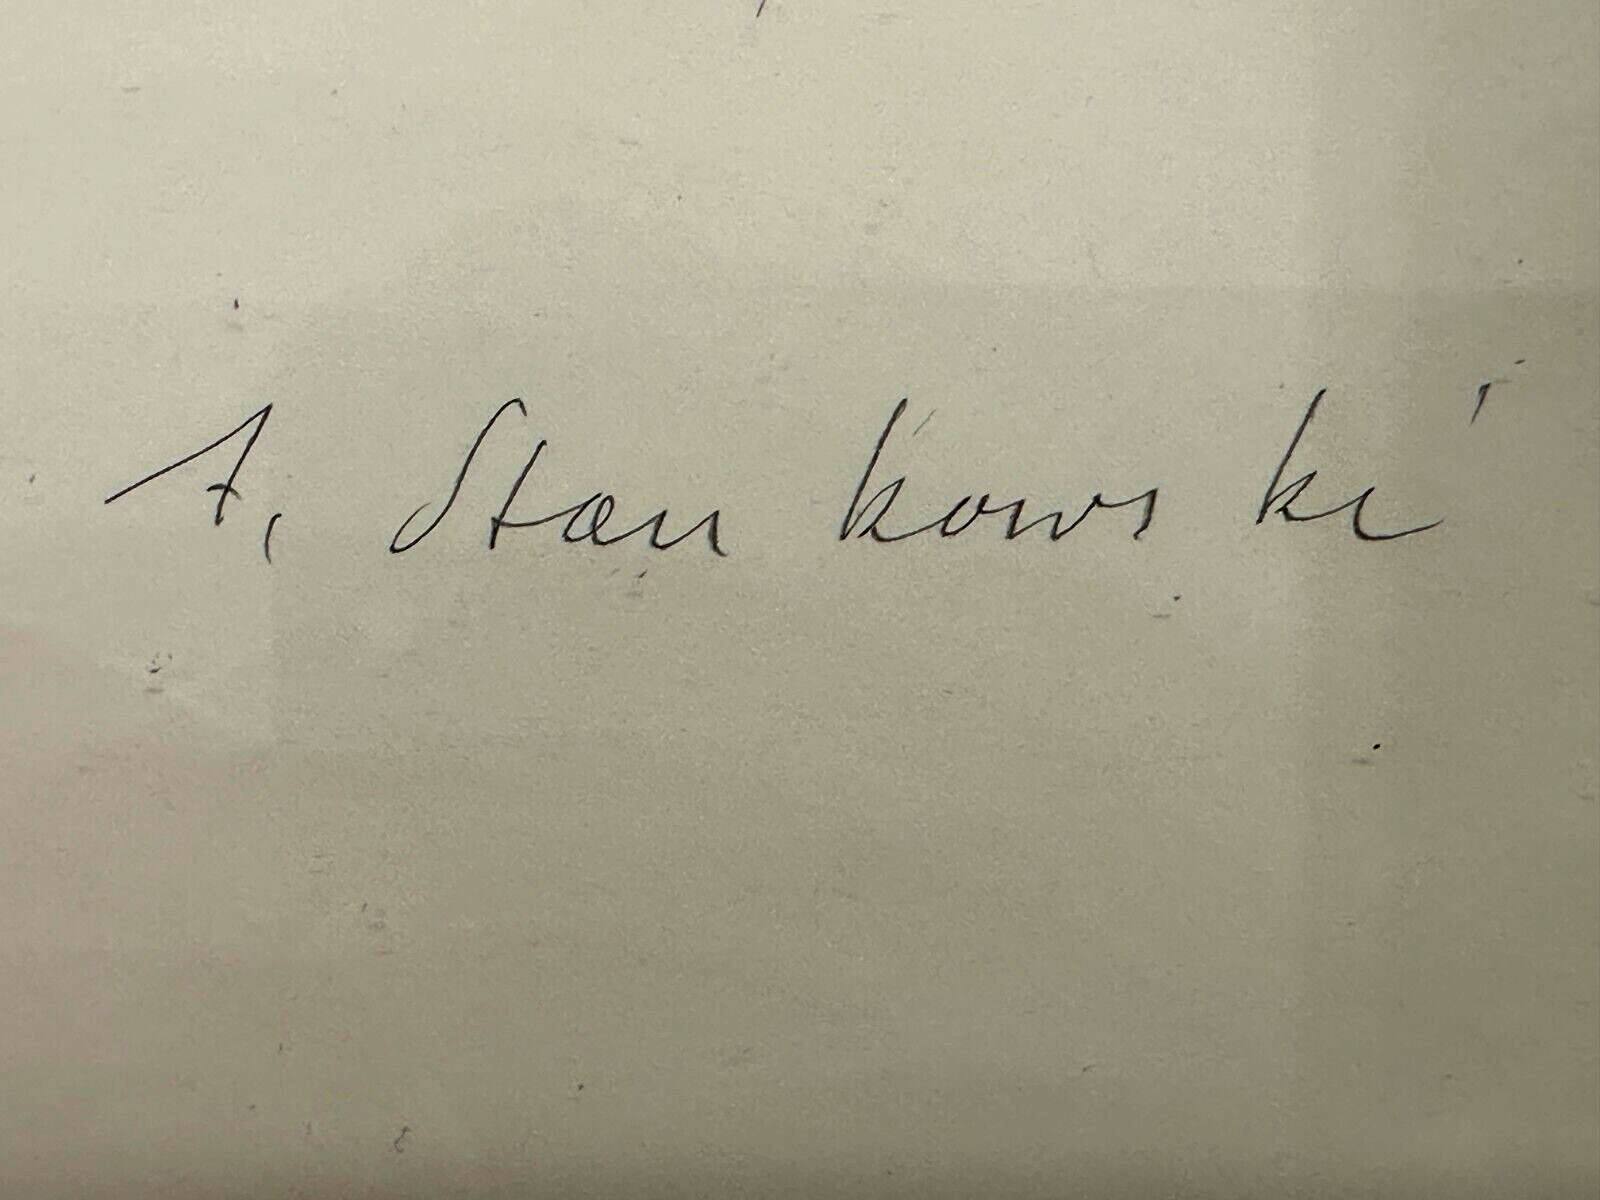 A. Stankowski